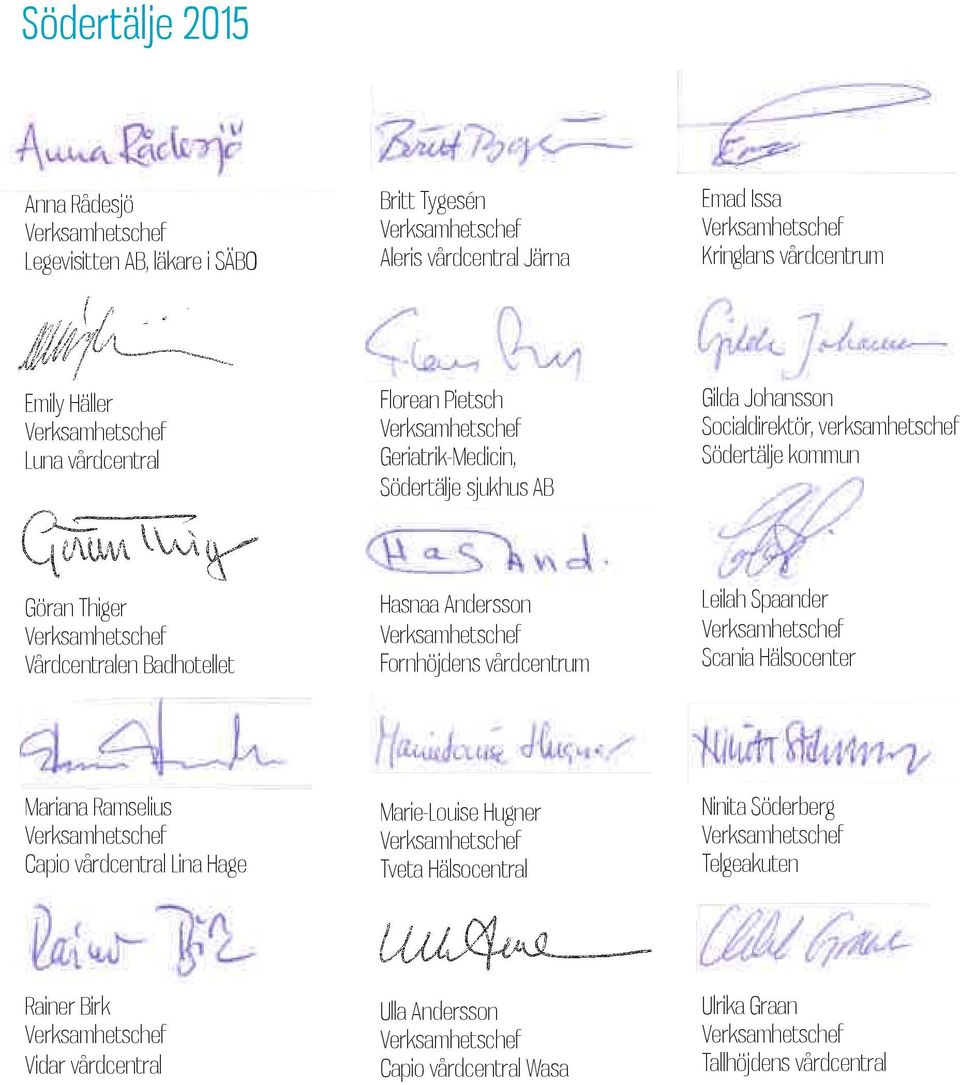 Södertälje 2015
Anna Rådesjö
Anna Rådesjö
Verksamhetschef
Legevisitten AB, läkare i SÄBO
Britt Tygesén
Verksamhetschef
Aleris vårdcentral Järna
Emad Issa
Verksamhetschef
Kringlans vårdcentrum
Emily Häller
Verksamhetschef
Luna vårdcentral
Florean Pietsch
Verksamhetschef
Geriatrik-Medicin,
Södertälje sjukhus AB
Gilda Johansson
Socialdirektör, verksamhetschef
Södertälje kommun
Göran Thiger
Verksamhetschef
Vårdcentralen Badhotellet
Has And.
Hasnaa Andersson
Verksamhetschef
Fornhöjdens vårdcentrum
Leilah Spaander
Verksamhetschef
Scania Hälsocenter
Mariana Ramselius
Verksamhetschef
Capio vårdcentral Lina Hage
Marie-Louise Hugner
Verksamhetschef
Tveta Hälsocentral
Ninita Söderberg
Verksamhetschef
Telgeakuten
Rainer Birk
Verksamhetschef
Vidar vårdcentral
Ulla Andersson
Verksamhetschef
Capio vårdcentral Wasa
Ulrika Graan
Verksamhetschef
Tallhöjdens vårdcentral